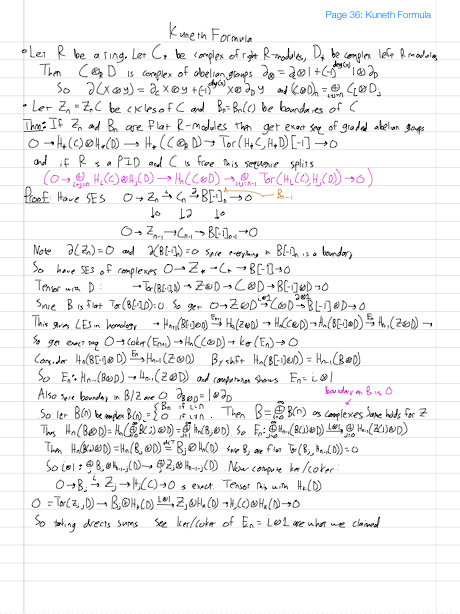 Page 36: Kuneth Formula
Kuneth Formula
• Let R be a ring. Let C* be complex of right R-modules, D* be complex left R modules
Then C⊗_R D is complex of abelian groups ∂_⊗ = ∂_C⊗1 + (-1)^{deg(x)} 1⊗∂_D
So ∂(x⊗y) = ∂_C x⊗y + (-1)^{deg(x)} x⊗∂_D y and (C⊗D)_n = ⊕_{i+j=n} C_i⊗D_j
• Let Z_n = Z_n C be cycles of C and B_n = B_n(C) be boundaries of C
Thm: If Z_n and B_n are flat R-modules then get exact seq of graded abelian groups
0 → H_*(C)⊗H_*(D) → H_*(C⊗D) → Tor(H_*C, H_*D)[-1] → 0
and if R is a PID and C is free this sequence splits
(0 → ⊕_{i+j=n} H_i(C)⊗H_j(D) → H_n(C⊗D) → ⊕_{i+j=n-1} Tor(H_i(C), H_j(D)) → 0)
Proof: Have SES 0 → Z_n →^i C_n →^∂ B[-1]_n → 0 B_{n-1}
↓0 ↓∂ ↓0
0 → Z_{n-1} → C_{n-1} → B[-1]_{n-1} → 0
Note ∂(Z_n) = 0 and ∂(B[-1]_n) = 0 since everything in B[-1]_n is a boundary
So have SES of complexes 0 → Z_* → C_* → B[-1] → 0
Tensor with D: → Tor(B[-1], D) → Z⊗D → C⊗D → B[-1]⊗D → 0
Since B is flat Tor(B[-1], D) = 0. So get 0 → Z⊗D →^{i⊗1} C⊗D →^{∂⊗1} B[-1]⊗D → 0
This gives LES in homology → H_{n+1}(B[-1]⊗D) →^{E_{n+1}} H_n(Z⊗D) → H_n(C⊗D) → H_n(B[-1]⊗D) →^{E_n} H_{n-1}(Z⊗D) →
So get exact seq 0 → coker(E_{n+1}) → H_n(C⊗D) → ker(E_n) → 0
Consider H_n(B[-1]⊗D) →^{E_n} H_{n-1}(Z⊗D) By shift H_n(B[-1]⊗D) = H_{n-1}(B⊗D)
So E_n: H_{n-1}(B⊗D) → H_{n-1}(Z⊗D) and computation shows E_n = i⊗1
Also since boundary in B/Z are 0 ∂_{B⊗D} = 1⊗∂_D boundary on B is 0
So let B(n) be complex B(n)_i = { B_n if i=n, 0 if i≠n. Then B = ⊕ B(n) as complexes. Same holds for Z
Thus H_n(B⊗D) = H_n(⊕B(j)⊗D) = ⊕ H_n(B(j)⊗D). So E_n: ⊕ H_{n-1}(B(j)⊗D) →^{i⊗1} ⊕ H_{n-1}(Z(j)⊗D)
Then H_n(B(j)⊗D) = H_n(B_j⊗D) = B_j⊗H_n(D) since B_j flat Tor(B_j, H_{n-1}(D)) = 0
So i⊗1: ⊕ B_j⊗H_{n-1-j}(D) → ⊕ Z_j⊗H_{n-1-j}(D). Now compute ker/coker:
0 → B_j →^i Z_j → H_j(C) → 0 is exact. Tensor this with H_*(D)
0 = Tor(Z_j, D) → B_j⊗H_*(D) →^{i⊗1} Z_j⊗H_*(D) → H_j(C)⊗H_*(D) → 0
So taking directs sums see ker/coker of E_n = i⊗1 are what we claimed